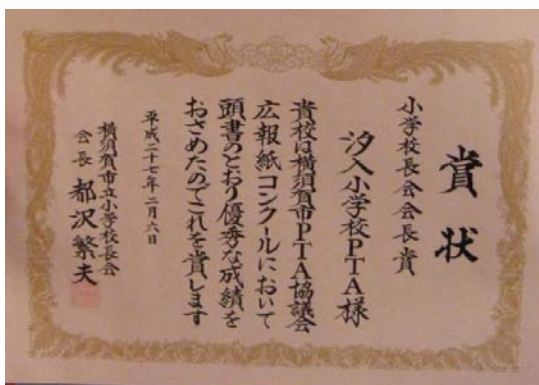 賞状
小学校長会会長賞
汐入小学校PTA様
貴校は横須賀市PTA協議会
広報紙コンクールにおいて
頭書のとおり優秀な成績を
おさめたのでこれを賞します
平成二十七年二月六日
横須賀市立小学校長会
会長 都沢繁夫